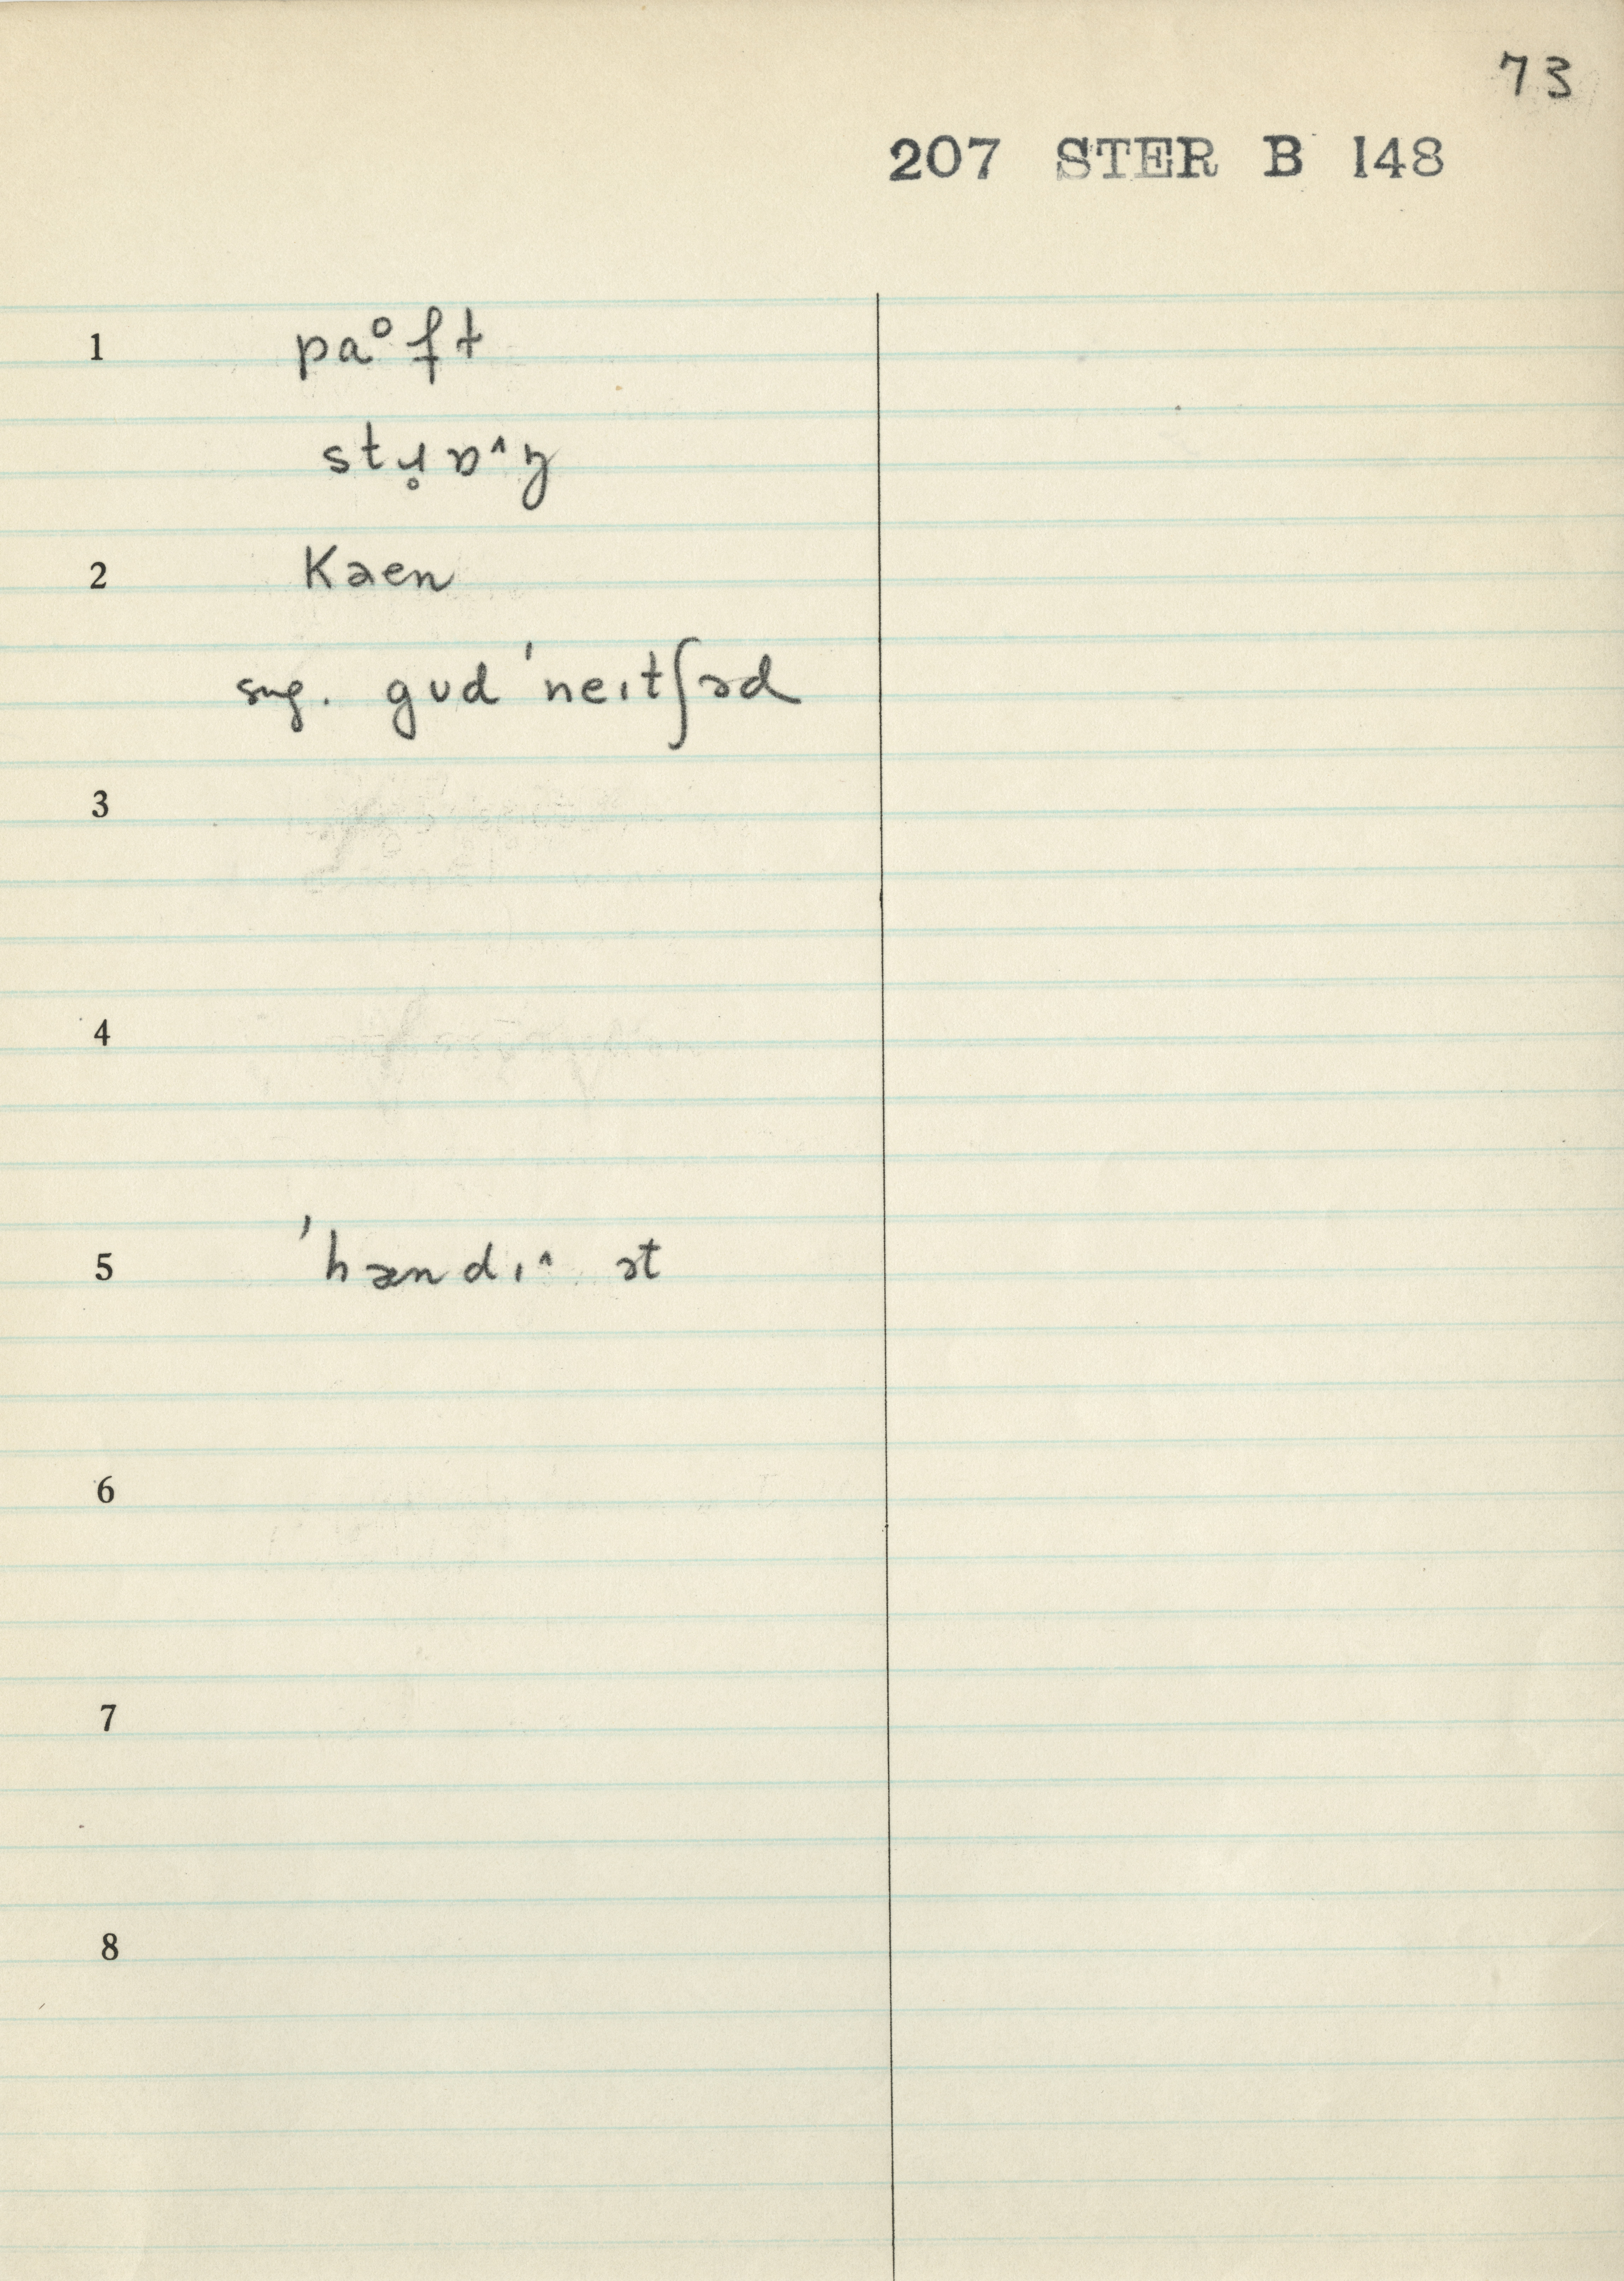 73
207 STER B 148
1 pa°ft
stɹ̥ɒ˄ŋ
2 Kaen
sug. gʊd 'neɪtʃəd
3
4
5 'hændɪ˄ ət
6
7
8